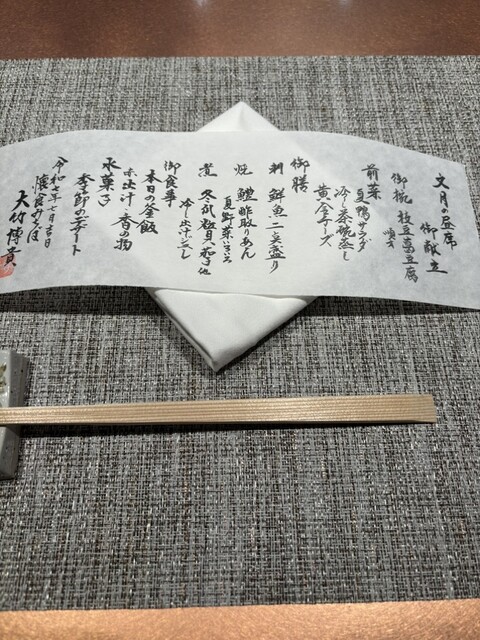 文月の昼席
御献立
御椀 枝豆豆腐
順才
前菜
夏鴨サラダ
冷し茶碗蒸し
黄金チーズ
御膳
鮮魚二点盛り
焼 鱧酢取りあん
夏野菜いろいろ
煮 冬瓜 他
御食事
本日の釜飯
赤出汁 香の物
水菓子
季節のデザート
令和七年七月吉日
大竹博貴